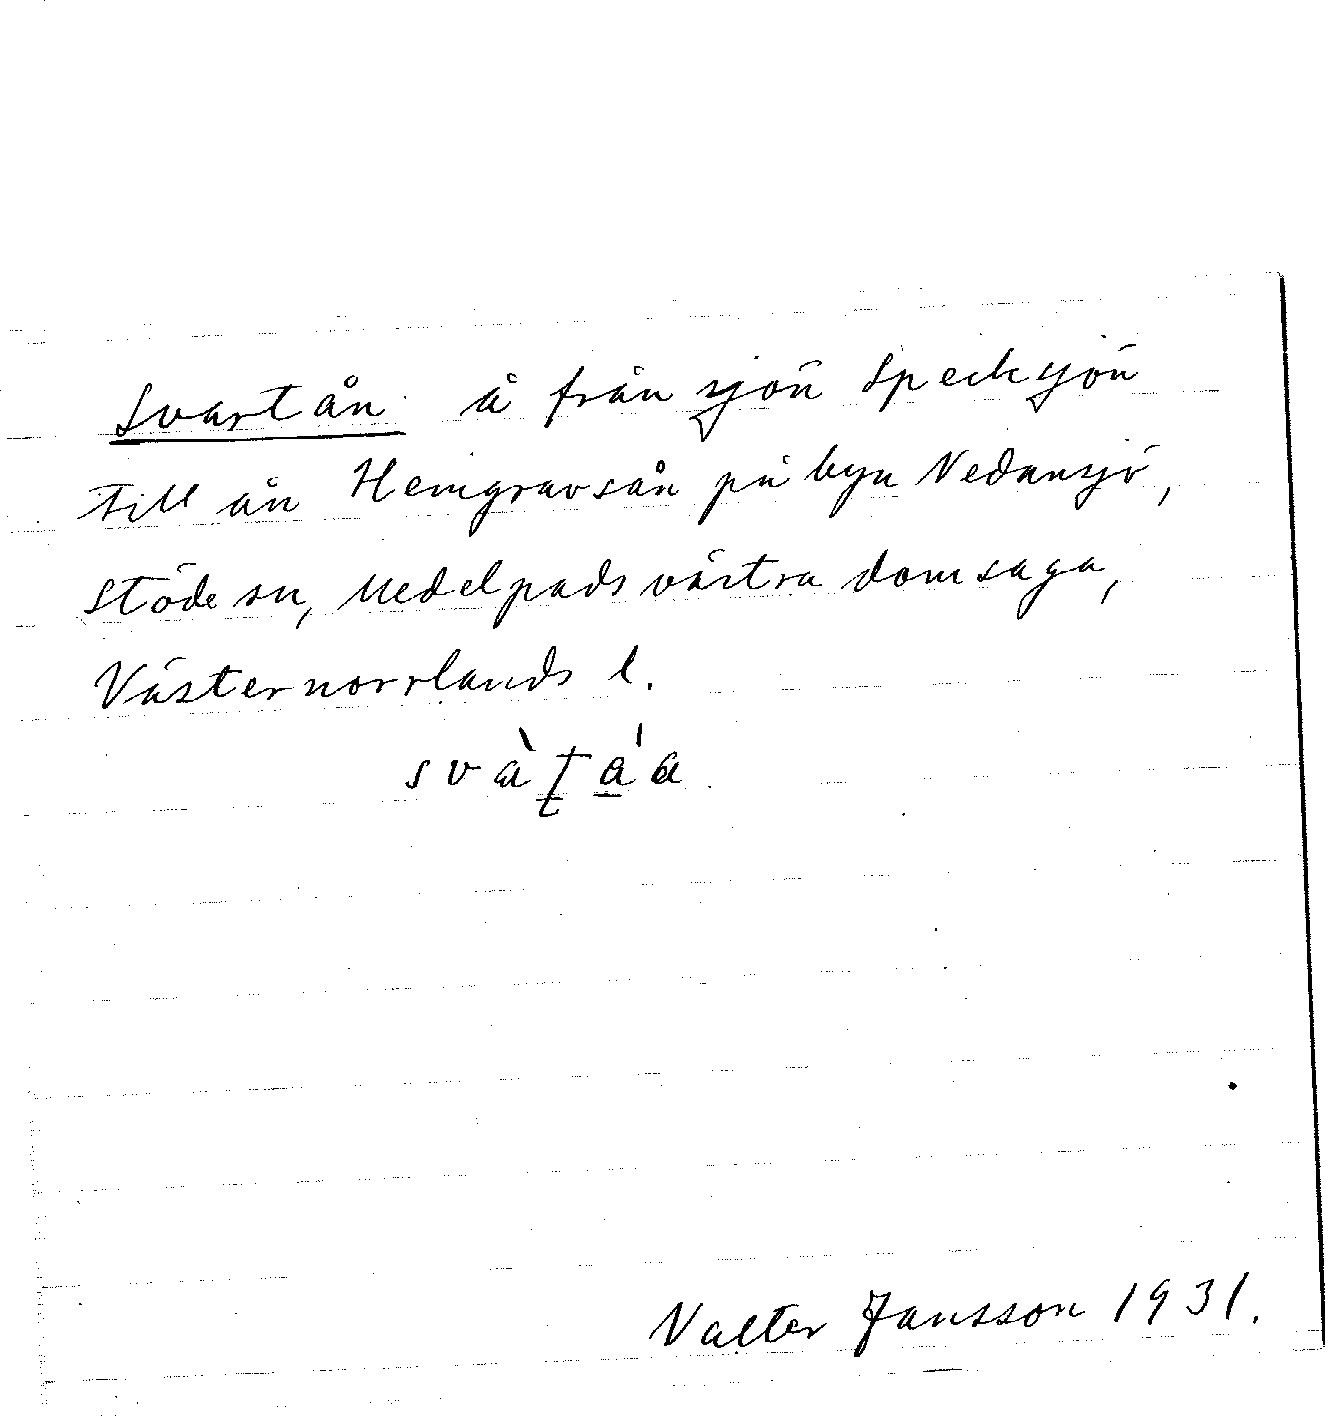 Svartån å från sjön Specksjön
till ån Hemgravsån på byn Nedansjö,
Stöde sn, Medelpads västra domsaga,
Västernorrlands l.
Valter Jansson 1931.